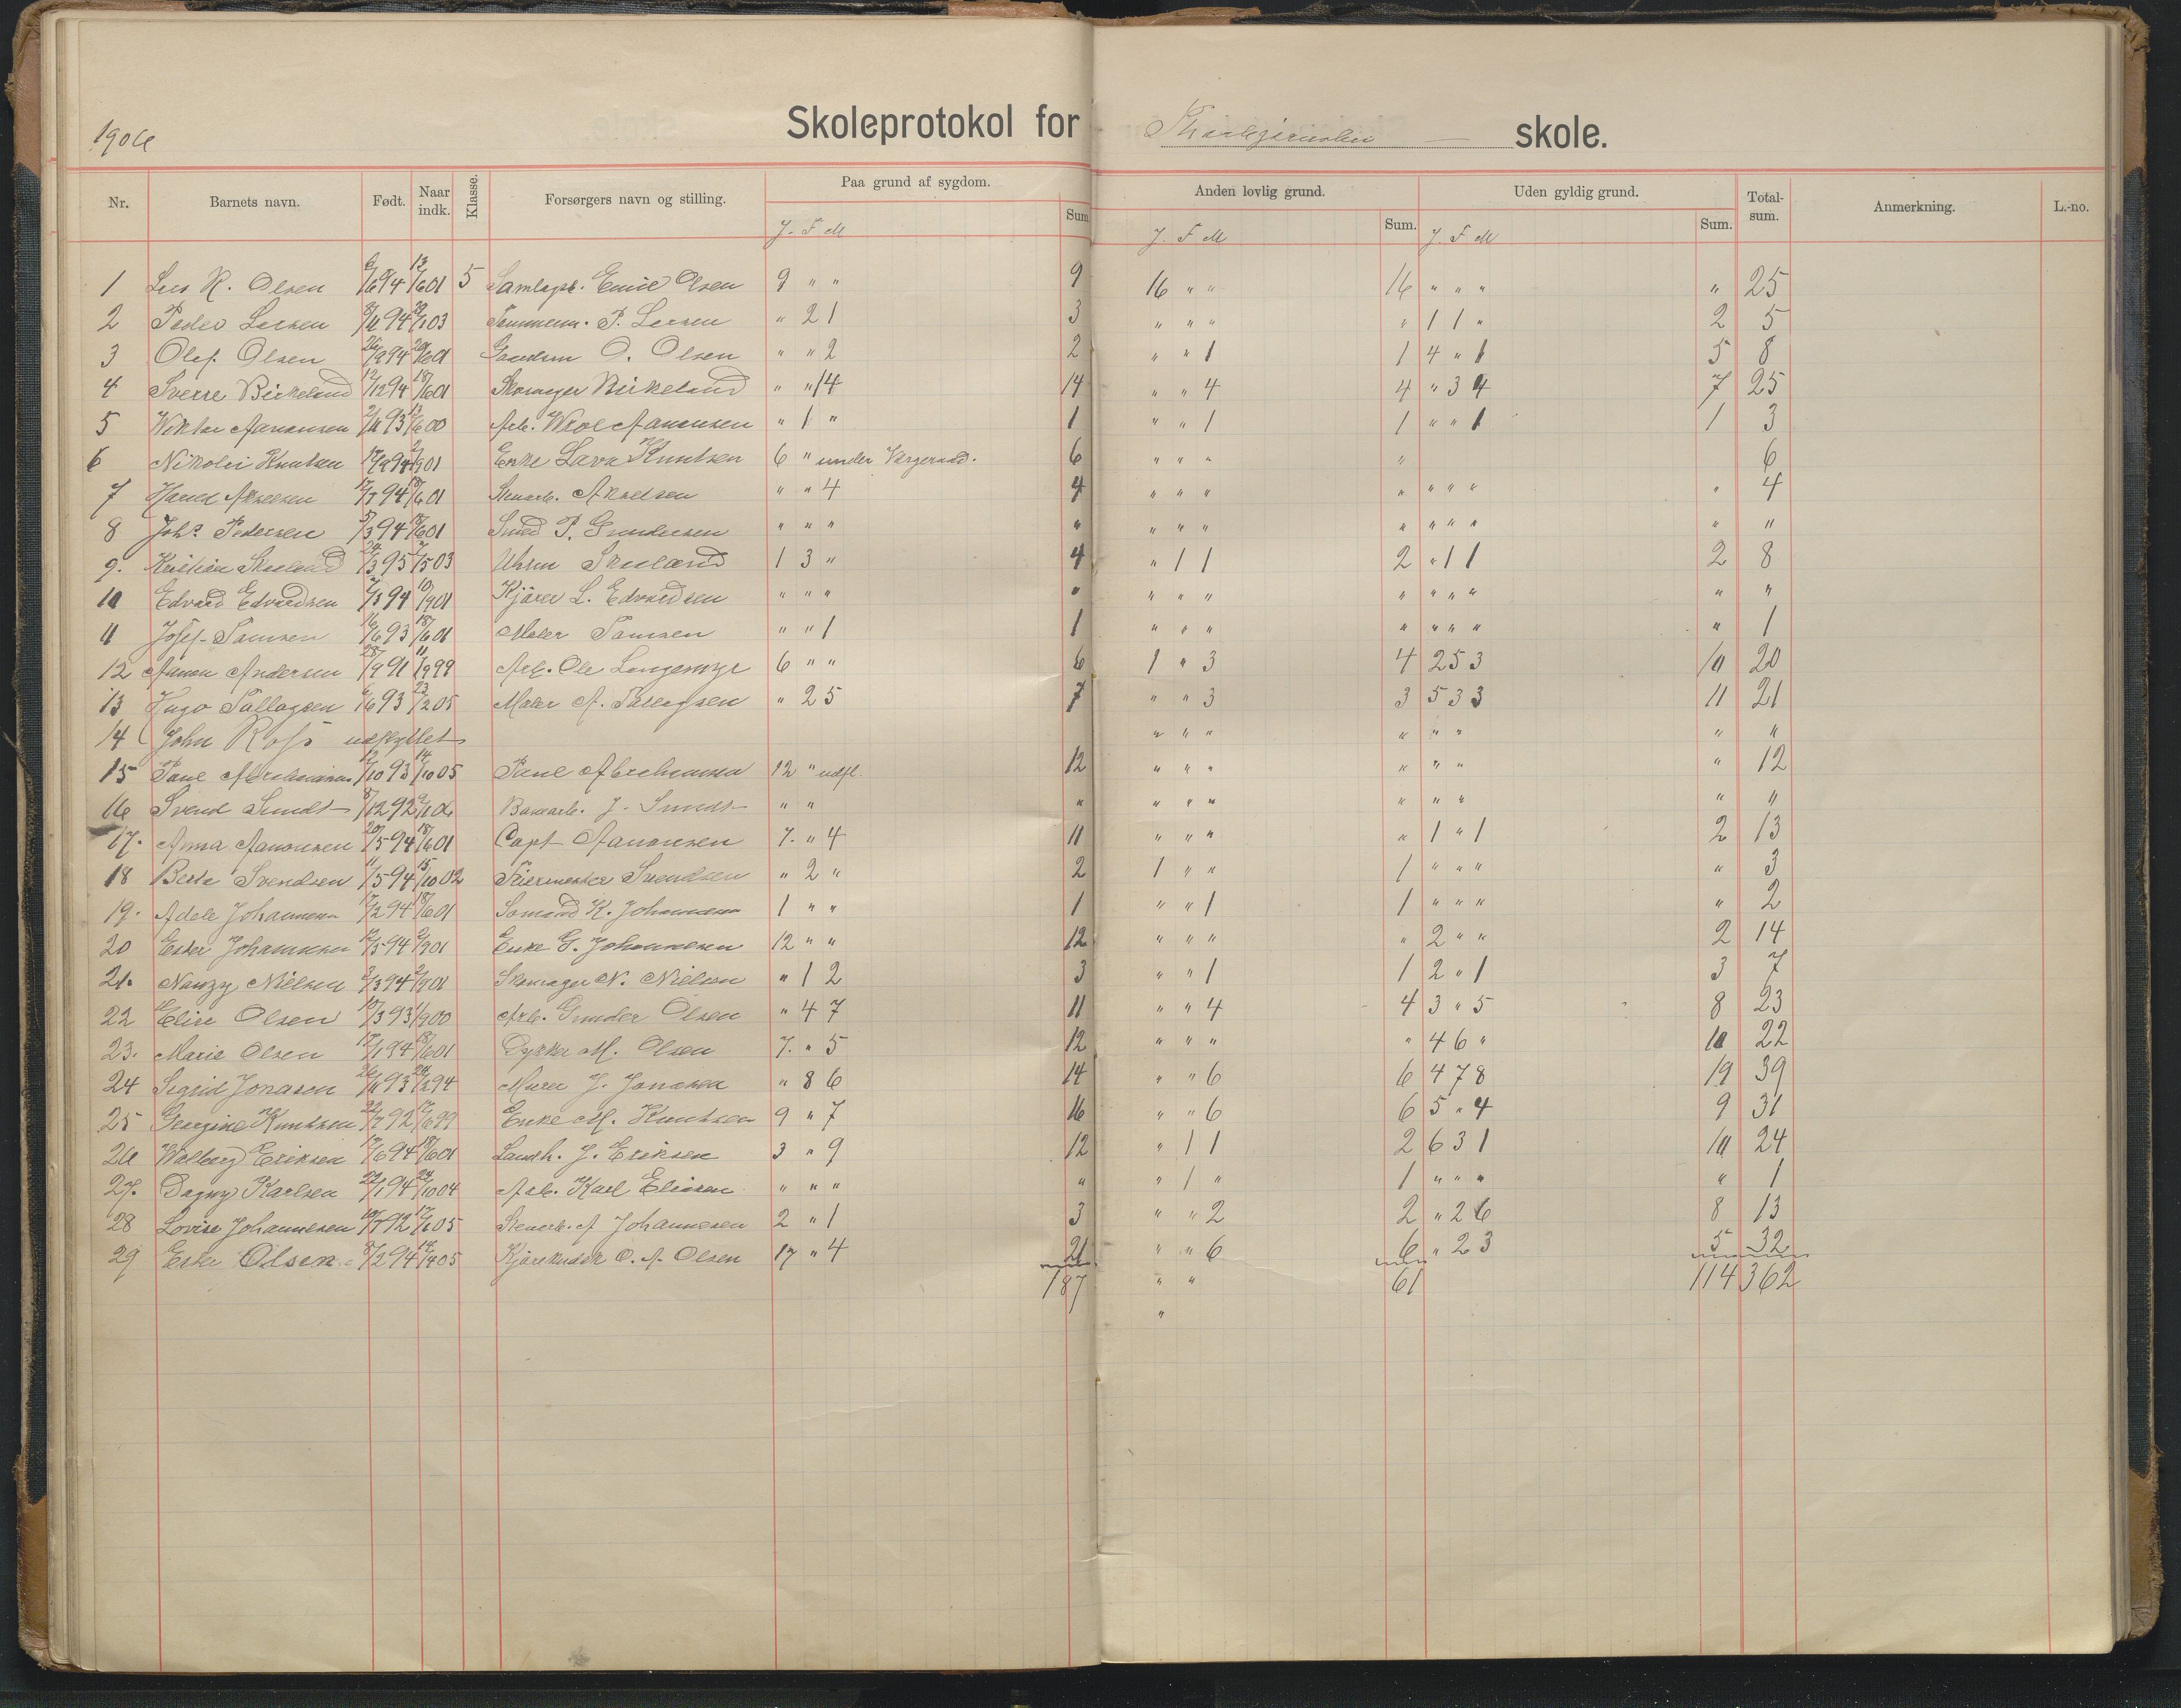 1906
Skoleprotokol for skole.
Nr. Barnets navn. Født. Naar indk. Klasse. Forsørgers navn og stilling. Paa grund af sygdom. Sum Anden lovlig grund. Sum. Uden gyldig grund. Sum. Total-sum. Anmerkning. L.-no.
J. F M J. F M J. F M
1 Lars R. Olsen 6/6 94 13/6 01 5 Emil Olsen 9 " " 9 16 " " 16 " " " " 25
2 Peder Larsen 94 03 Tømmerm. P. Larsen " 2 1 3 " " " " 1 1 " 2 5
3 Olaf Olsen 26/9 94 01 O. Olsen " " 2 2 " " 1 1 4 " 1 5 8
4 Sverre Birkeland 12/12 94 18/6 01 Skomager Birkeland " " 14 14 " " 4 4 " 3 4 7 25
5 Viktor Aanonsen 93 13/6 00 Arb. Aanonsen " 1 " 1 " " 1 1 " " 1 1 3
6 Nikolai Knutsen 94 2/9 01 Enke Lava Knutsen 6 " under Vergeraad. 6 " " " " 6
7 Harald Akselsen 94 18/6 01 Stenarb. Akselsen " " 4 4 " " " " " " " " 4
8 Johs Pedersen 94 18/6 01 Smed P. Gundersen " " " " " " " " " " " " "
9. Kristian Skeeland 24/3 95 03 Uhrm Skeeland 1 3 " 4 " 1 1 2 " 1 1 2 8
10 Edvard Edvardsen 94 10/9 01 Kjører L. Edvardsen " " " " " " " " " " " " "
11 Josef Samsen 16/6 93 18/6 01 Maler Samsen " " 1 1 " " " " " " " " 1
12 Aanon Andersen 28/9 91 11/9 99 Arb. Ole Langemyr 6 " " 6 1 " 3 4 2 5 3 10 20
13 Hugo Tallagsen 6/6 93 23/2 05 Maler A. Tallagsen " 2 5 7 " " 3 3 5 3 3 11 21
14 John Ross udflyttet " " " " " " " "
15 Paul Abrahamsen 12/10 93 14/10 05 Paul Abrahamsen 12 " udfl. 12 " " " " " " " 12
16 Svend Sundt 8/12 92 06 Banearb. J. Sundt " " " " " " " " " " "
17. Anna Aanonsen 20/5 94 18/6 01 Capt Aanonsen 7. " 4 11 " " " " 1 " 1 2 13
18 Berta Svendsen 11/5 94 15/10 02 Feiermester Svendsen " 2 " 2 1 " " 1 " " " " 3
19. Adele Johannesen 94 18/6 01 Sømand K. Johannesen 1 " " 1 " " 1 1 " " " " 2
20 Ester Johannesen 94 2/9 01 Enke G. Johannesen 12 " " 12 " " " " 2 " " 2 14
21. Nanzy Nielsen 94 2/9 01 Skomager N. Nielsen " 1 2 3 " " 1 1 2 " 1 3 7
22 Elise Olsen 93 00 Arb. Gunder Olsen " 4 7 11 " " 4 4 3 " 5 8 23
23. Marie Olsen 94 18/6 01 Dykker M. Olsen 7. " 5 12 " " " " 4 6 " 10 22
24 Sigrid Jonasen 93 94 Murer J. Jonasen " 8 6 14 " " 6 6 4 7 8 19 39
25 Georgine Knutsen 92 99 Enke M. Knutsen 9 " 7 16 " " 6 6 5 " 4 9 31
26 Walborg Eriksen 94 18/6 01 Landh. J. Eriksen 3 " 9 12 " 1 1 2 6 3 1 10 24
27. Dagny Karlsen 22/1 94 24/10 04 Arb. Karl Eliasen " " " " " 1 " 1 " " " " 1
28 Lovise Johannesen 92 05 Stenarb. A Johannesen 2 " 1 3 " " 2 2 " 2 6 8 13
29 Ester Olsen 94 05 Kjørekudsk O. A. Olsen 17 " 4 21 " " 6 6 " 2 3 5 32
187 " " 61 114 362
"